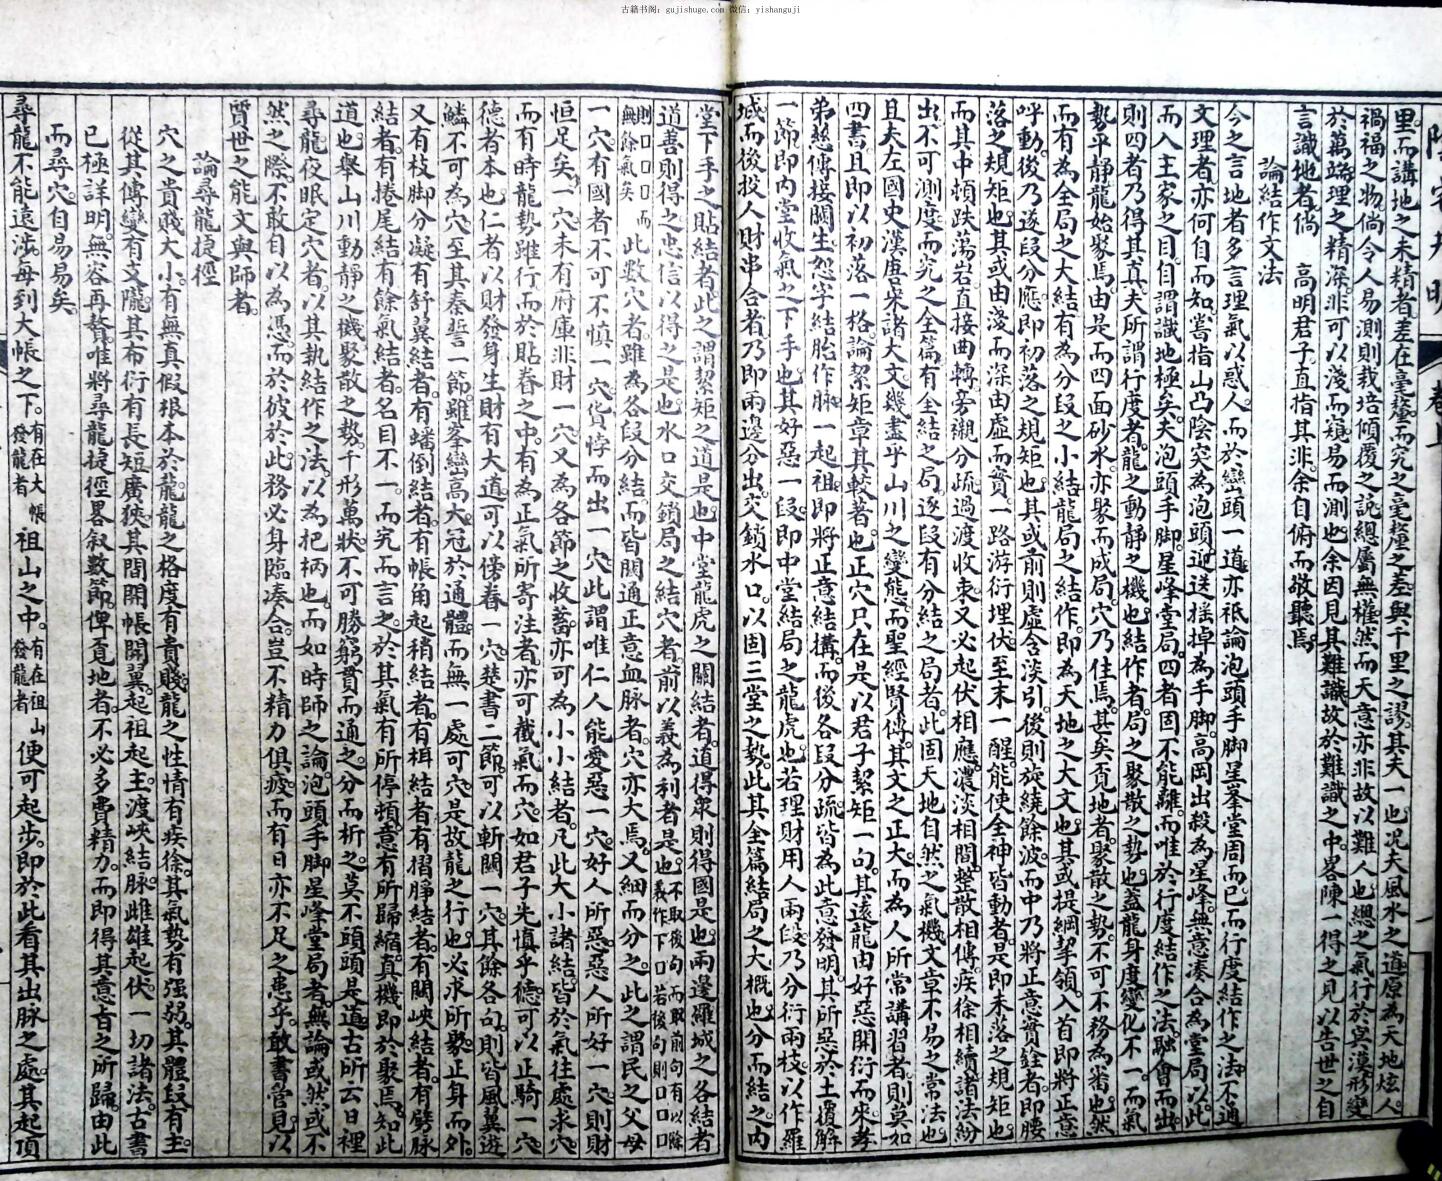 古籍书阁：gujishuge.com 微信：yishanguji
里而講地之未精者差在毫釐而究之毫釐之差與千里之謬其夫一也况夫風水之道原為天地炫人
禍福之物倘令人易測則栽培傾覆之說總屬無權然而天意亦非故以難人也總之氣行於冥漠形變
於萬端理之精深非可以淺而窺易而測也余因見其難識故於難識之中畧陳一得之見以告世之自
言識地者倘 高明君子直指其非余自俯而敬聽焉
論結作文法
今之言地者多言理氣以惑人而於巒頭一道亦祗論泡頭手脚星峯堂周而已而行度結作之法不通
文理者亦何自而知嘗指山凸陰突為泡頭迎送搖掉為手脚高岡出殺為星峰無意湊合為堂局以此
而入主家之目自謂識地極矣夫泡頭手脚星峰堂局四者固不能離而唯於行度結作之法融會而出
則四者乃得其真夫所謂行度者龍之動靜之機也結作者局之聚散之勢也蓋龍身度變化不一而氣
勢平靜龍始聚焉由是而四面砂水亦聚而成局穴乃住焉甚矣覓地者聚散之勢不可不務為省也然
而有為全局之大結有為分段之小結龍局之結作即為天地之大文也其或提綱挈領入首即將正意
呼動後乃逐段分應即初落之規矩也其或前則虛含淡引後則旋繞餘波而中乃將正意實詮者即腰
落之規矩也其或由淺而深由虛而實一路游衍埋伏至末一醒能使全神皆動者是即末落之規矩也
而其中頓跌蕩岩直接曲轉旁襯分疏過渡收束又必起伏相應濃淡相間整散相傳疾徐相續諸法紛
出不可測度而究之全篇有全結之局逐段有分結之局者此固天地自然之氣機文章不易之常法也
且夫左國史漢唐宋諸大文幾盡乎山川之變態而聖經賢傳其文之正大而為人所常講習者則莫如
四書且即以初落一格論絜矩章其較著也正穴只在是以君子絜矩一句其遠龍由好惡開衍而來孝
弟慈傳接關生恕字結胎作脉一起祖即將正意結搆而後各段分疏皆為此意發明其所惡於上覆解
一節即内堂收氣之下手也其好惡一段即中堂結局之龍虎也若理財用人兩段乃分衍兩枝以作羅
城而後投人財串合者乃即兩邊分出交鎖水口以固三堂之勢此其全篇結局之大概也分而結之内
堂下手之貼結者此之謂絜矩之道是也中堂龍虎之關結者道得眾則得國是也兩邊羅城之各結者
道善則得之忠信以得之是也水口交鎖局之結穴者前以義為利者是也不取後句而取前句有以餘義作下口若後句則口口口
則口口口口而無餘氣矣此數穴者雖為各段分結而皆關通正意血脉者穴亦大焉又細而分之此之謂民之父母
一穴有國者不可不慎一穴貨悖而出一穴此謂唯仁人能愛惡一穴好人所惡惡人所好一穴則財
恒足矣一穴未有府庫非財一穴又為各節之收蓄亦可為小小結者凡此大小諸結皆於氣往處求穴
而有時龍勢雖行而於貼脊之中有為正氣所寄注者亦可截氣而穴如君子先慎乎德可以正騎一穴
德者本也仁者以財發身生財有大道可以傍脊一穴楚書二節可以斬關一穴其餘各句則皆風翼遊
鱗不可為穴至其秦誓一節雖峯巒高大冠於通體而無一處可穴是故龍之行也必求所聚正身而外
又有枝脚分凝有舒翼結者有蟠倒結者有帳角起稍結者有楫結者有摺腁結者有關峽結者有劈脉
結者有捲尾結有餘氣結者名目不一而究而言之於其氣有所停頓意有所歸縮真機即於聚焉知此
道也舉山川動靜之機聚散之勢千形萬狀不可勝窮貫而通之分而析之莫不頭頭是道古所云日裡
尋龍夜眠定穴者以其執結作之法以為把柄也而如時師之論泡頭手脚星峰堂局者無論或然或不
然之際不敢自以為憑而於彼於此務必身臨湊合豈不精力俱疲而有日亦不足之患乎敢書管見以
質世之能文與師者
論尋龍捷徑
穴之貴賤大小有無真假根本於龍龍之格度有貴賤龍之性情有疾徐其氣勢有强弱其體段有主
從其傳變有支隴其布衍有長短廣狹其間開帳開翼起祖起主渡峽結脉雌雄起伏一切諸法古書
已極詳明無容再贅唯將尋龍捷徑畧叙數節俾覓地者不必多費精力而即得其意旨之所歸由此
而尋穴自易易矣
尋龍不能遠涉每到大帳之下有在大帳發龍者祖山之中有在祖山發龍者便可起步即於此看其出脉之處其起頂